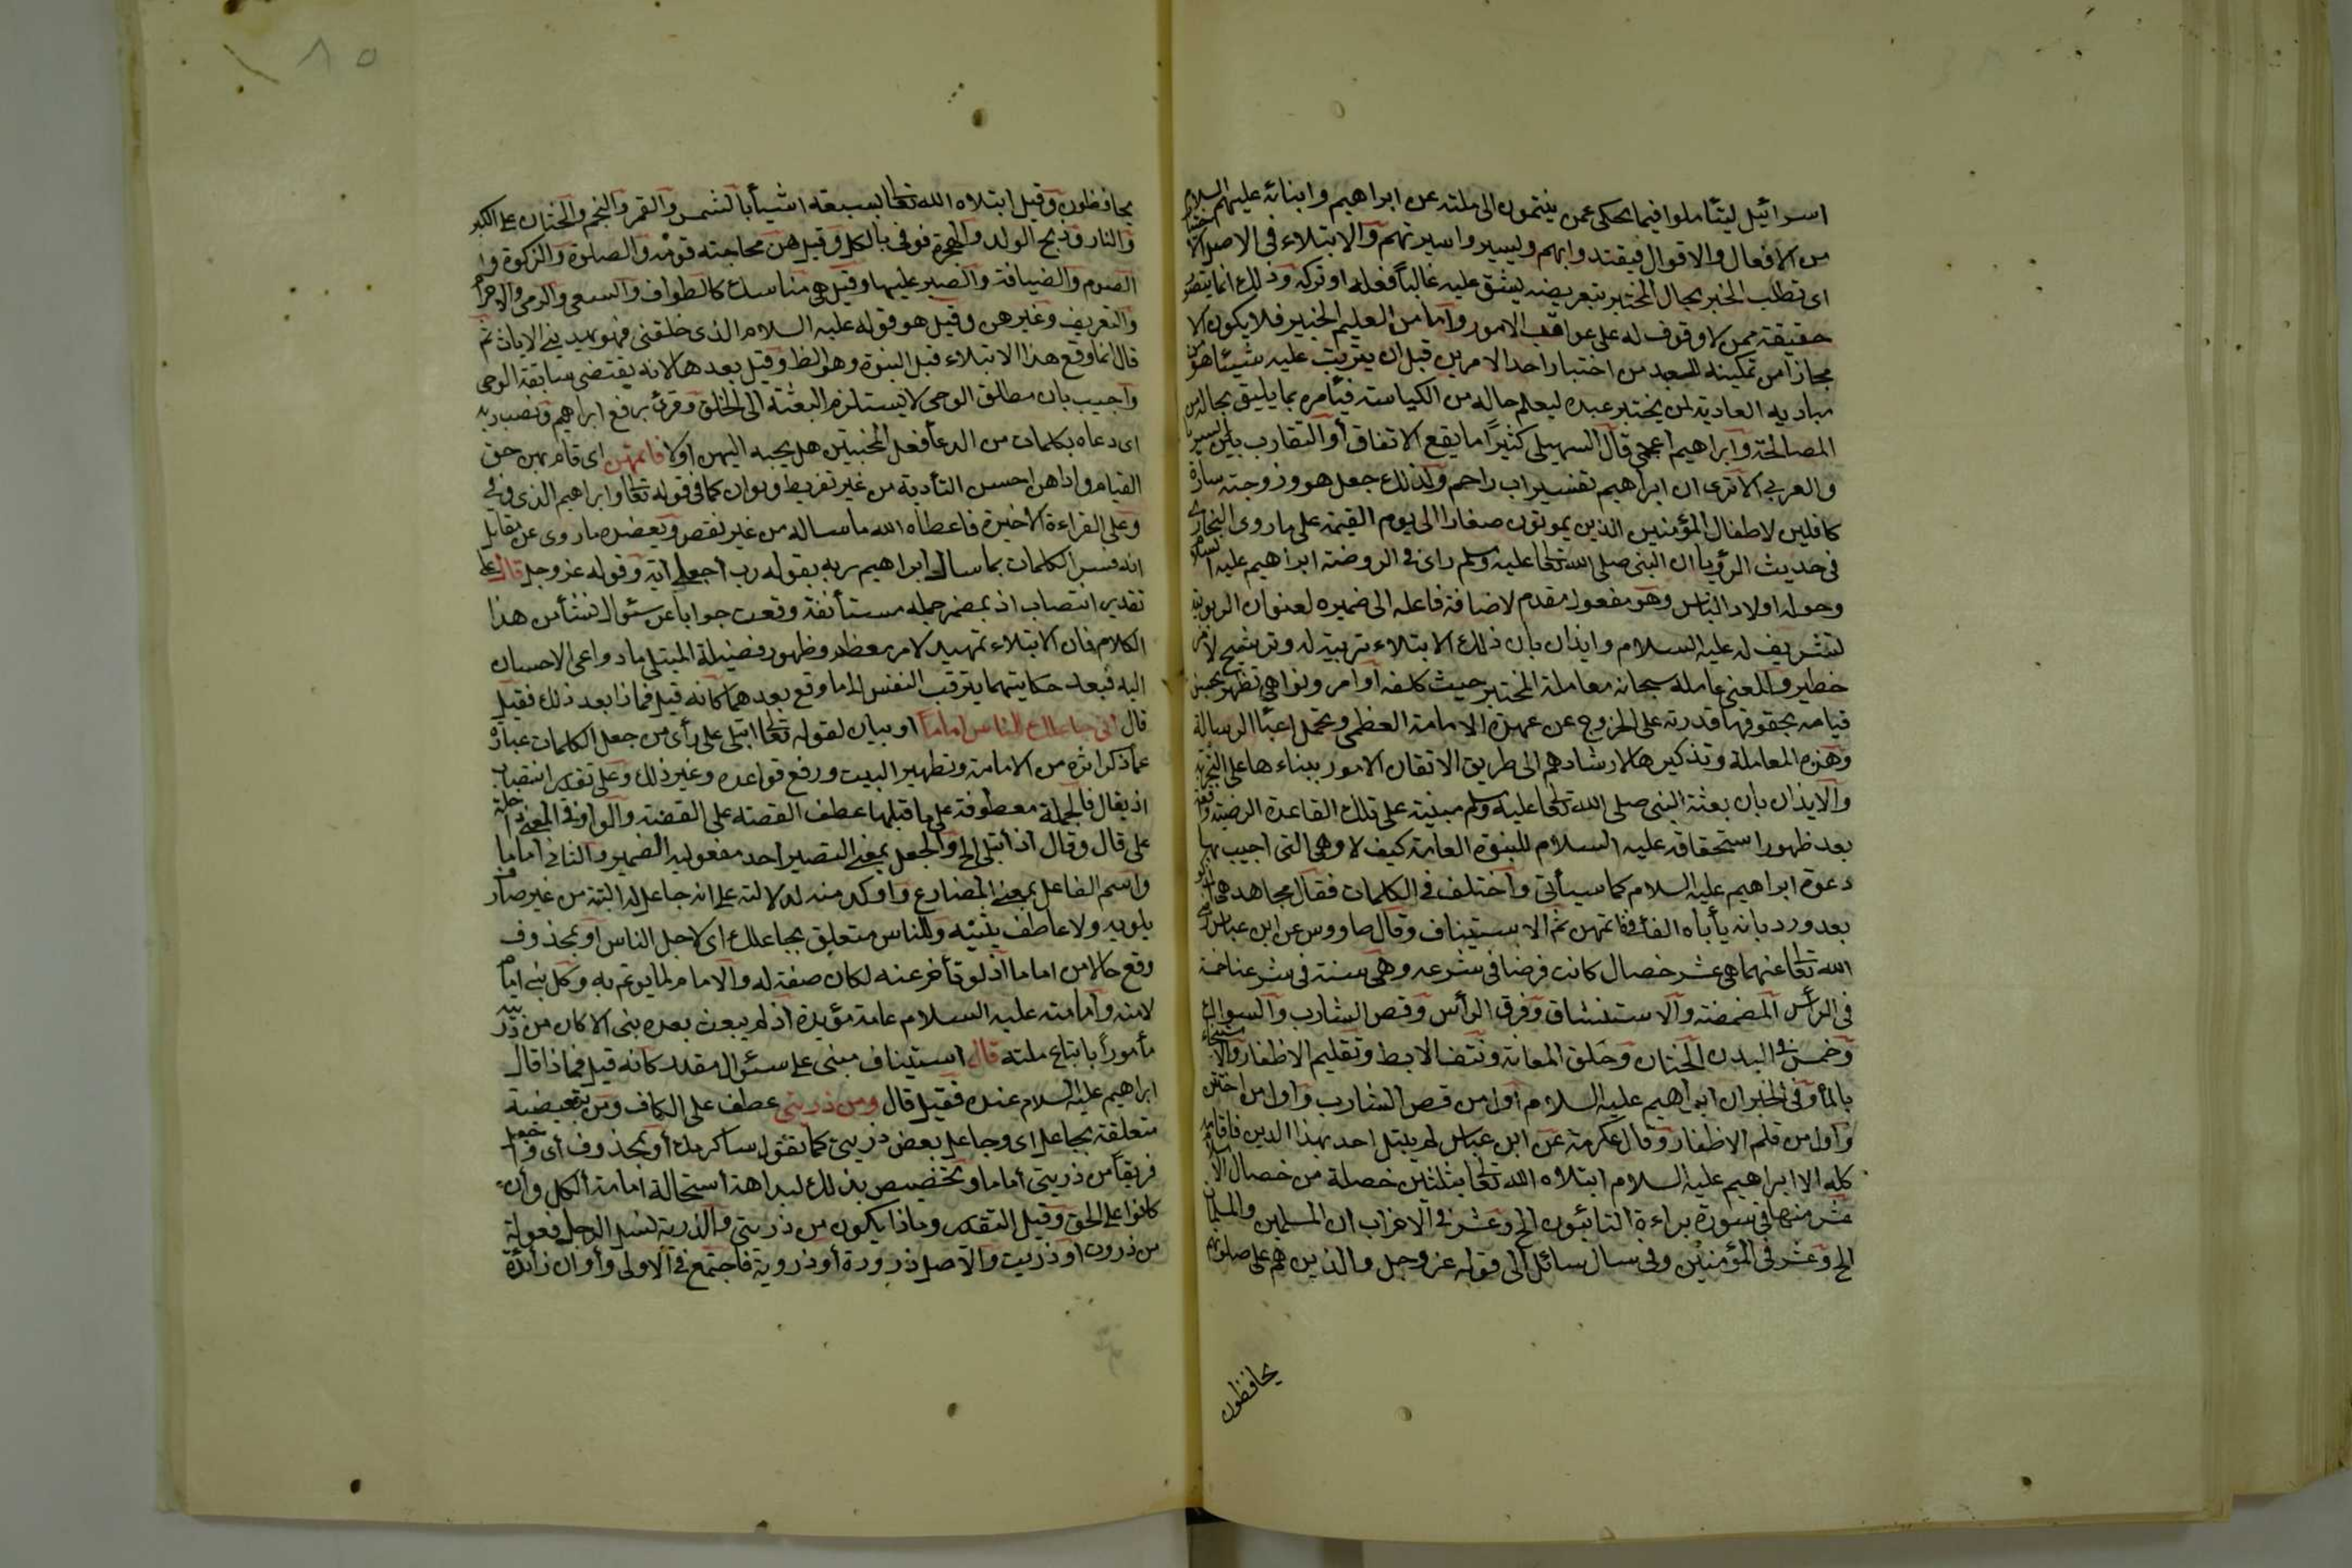 اسرائيل ليتأملوا فيما يحكى عمن ينتمون الى ملته من ابراهيم وابنائه عليهم السلام
من الافعال والاقوال فيقتدوا بهم ويسيروا سيرتهم والابتلاء فى الاصل الاختبار
اى تطلب الخبر بحال المختبر بتعريضه لامر يشق عليه غالبا فعله او تركه وذلك انما يتصور
حقيقة ممن لا وقوف له على عواقب الامور واما من العليم الخبير فلا يكون الا
مجازا من تمكينه للعبد من اختيار احد الامرين قبل ان يترتب عليه شيئا هو من
مباديه العادية لمن يختبر عبده ليعلم حاله من الكياسة فيأمره بما يليق بحاله من
المصالحة وابراهيم اعجمى قال السهيلى كثيرا ما يقع الاتفاق أو التقارب بين السريانى
والعربى الا ترى ان ابراهيم تفسيره اب راحم ولذلك جعل هو وزوجته سارة
كافلين لاطفال المؤمنين الذين يموتون صغارا الى يوم القيمة على ما روى البخارى
فى حديث الرؤيا ان النبى صلى الله تعالى عليه وسلم راى فى الروضة ابراهيم عليه السلام
وحوله اولاد الناس وهو مفعول مقدم لاضافة فاعله الى ضميره لعنوان الربوبية
تشريف له عليه السلام وايذان بان ذلك الابتلاء تربية له وترشيح لامر
خطير والمعنى عامله سبحانه معاملة المختبر حيث كلفه أوامر ونواهى تظهر بحسن
قيامه بحقوقها قدرته على الخروج عن عهدة الامامة العظمى وتحمل اعباء الرسالة
وهذه المعاملة وتذكيرها لارشادهم الى طريق الاتقان الامور ببناءها على التجربة
والايذان بان بعثة النبى صلى الله تعالى عليه وسلم مبنية على تلك القاعدة الرضية واقعة
بعد ظهور استحقاقه عليه السلام للنبوة العامة كيف لا وهى التى اجيب بها
دعوة ابراهيم عليه السلام كما سيأتى واختلف فى الكلمات فقال مجاهد هى
بعده ورد بانه يأباه الفأ فى فاتمهن ثم الاستيناف وقال طاووس عن ابن عباس رضى
الله تعالى عنهما هى عشر خصال كانت فرضا فى شرعه وهى سنة فى شرعنا خمسة
فى الرأس المضمضة والاستنشاق وفرق الرأس وقص الشارب والسواك
وخمس فى البدن الختان وحلق العانة ونتف الابط وتقليم الاظفار والاستنجاء
بالمأ وفى الخبر ان ابراهيم عليه السلام اول من قص الشارب واول من اختتن
واول من قلم الاظفار وقال عكرمة عن ابن عباس لم يبتل احد بهذا الدين فاقامه
كله الا ابراهيم عليه السلام ابتلاه الله تعالى بثلثين خصلة من خصال الاسلام
عشر منها فى سورة براءة التائبون الخ وعشر فى الاحزاب ان المسلمين والمسلمات
الخ وعشر فى المؤمنين وفى سال سائل الى قوله عز وجل والذين هم على صلوتهم
يحافظون
يحافظون وقيل ابتلاه الله تعالى بسبعة اشيأ بالشمس والقمر والنجم والختان على الكبر
والنار وذبح الولد والهجرة فوفى بالكل وقيل هن محاجته قومه والصلوة والزكوة و
الصوم والضيافة والصبر عليها وقيل هى مناسك كالطواف والسعى والرمى والاحرام
والتعريف وغيرهن وقيل هو قوله عليه السلام الذى خلقنى فهو يهدينى الايات ثم
قال انما وقع هذا الابتلاء قبل النبوة وهو الظ وقيل بعدها لانه يقتضى سابقة الوحى
واجيب بان مطلق الوحى لا يستلزم البعثة الى الخلق وقرئ برفع ابراهيم ونصب ربه
اى دعاه بكلمات من الدعأ فعل المختبرين هل يجيبه اليهن او لا فاتمهن اى قام بهن حق
القيام واداهن احسن التأدية من غير تفريط وتوان كما فى قوله تعالى وابراهيم الذى وفى
وعلى القراءة الاخيرة فاعطاه الله ما ساله من غير نقص ويعضده ما روى عن مقاتل
انه فسر الكلمات بما سال ابراهيم ربه بقوله رب اجعل الآية وقوله عز وجل قال على
تقدير انتصاب اذ بمضمر جمله مستأنفة وقعت جوابا عن سئوال نشأ من هذا
الكلام فان الابتلاء تمهيد لامر معظم وظهور فضيلة المبتلى من دواعى الاحسان
اليه فبعد حكايتهما يترقب النفس الى ما وقع بعدهما كانه قيل فماذا بعد ذلك فقيل
قال انى جاعلك للناس اماما او بيان لقوله تعالى ابتلى على رأى من جعل الكلمات عبارة
عما ذكر اثره من الامامة وتطهير البيت ورفع قواعده وغير ذلك وعلى تقدير انتصاب
اذ بقال فالجملة معطوفة على ما قبلها عطف القصة على القصة والواو فى المعنى داخلة
على قال وقال اذ ابتلى الخ والجعل بمعنى التصيير احد مفعوليه الضمير والثانى اماما
واسم الفاعل بمعنى المضارع واوكد منه لدلالته على انه جاعل له البتة من غير صارف
يلويه ولا عاطف يثنيه وللناس متعلق بجاعلك اى لاجل الناس او بمحذوف
وقع حالا من اماما اذ لو تأخر عنه لكان صفة له والامام لما يوتم به وكل نبى امام
لامته وامامته عليه السلام عامة مؤبدة اذ لم يبعث بعده نبى الا كان من ذريته
مأمورا باتباع ملته قال استيناف مبنى على سئوال مقدر كانه قيل فماذا قال
ابراهيم عليه السلام عنده فقيل قال ومن ذريتى عطف على الكاف ومن تبعيضية
متعلقة بجاعل اى وجاعل بعض ذريتى كما تقول ساكرمك أو بمحذوف أى واجعل
فريقا من ذريتى أماما وتخصيص بذلك لبداهة أستحالة امامة الكل وأن
كانوا على الحق وقيل التقدير وماذا يكون من ذريتى والذرية نسل الرجل فعولة
من ذروت او ذريت والاصل ذرورة أو ذروية فاجتمع فى الاولى وأوان زائدة